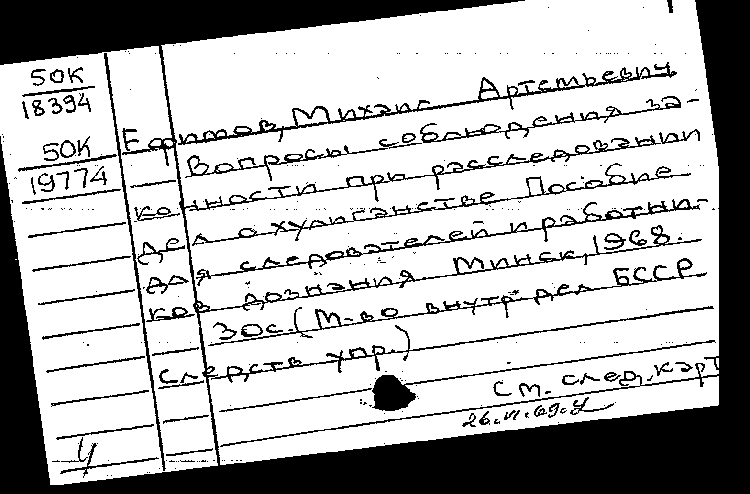 50К
18394
50К
19774
Ефимов, Михаил Артемьевич
Вопросы соблюдения за-
конности при расследовании
дел о хулиганстве Пособие
для следователей и работни-
ков дознания. Минск, 1968.
30с. (М-во внутр. дел БССР
Следств упр.)
См. след. карт
26.VI.69.